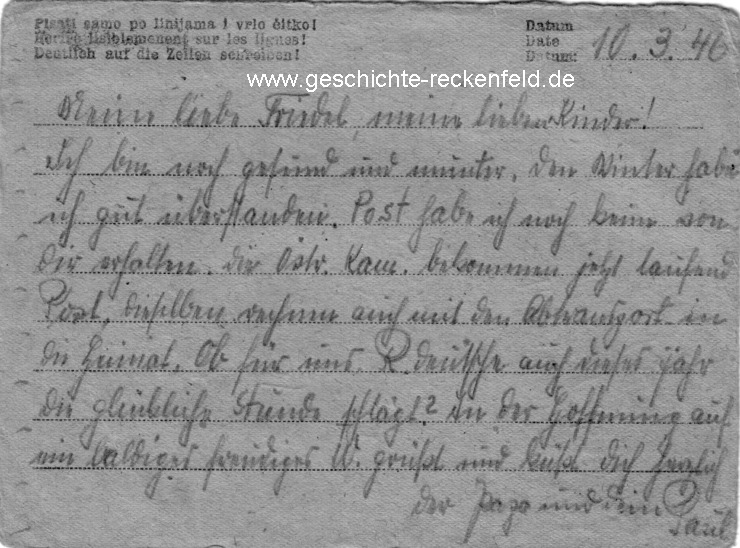 Pisati samo po linijama i vrlo čitko!
Ecrire lisiblemenent sur les lignes!
Deutlich auf die Zeilen schreiben!
Datum
Date
Datum: 10.3.46
www.geschichte-reckenfeld.de
Meine liebe Friedel, meine lieben Kinder!
Ich bin noch gesund und munter. Den Winter habe
ich gut überstanden. Post habe ich noch keine von
Dir erhalten. Die Östr. Kam. bekommen jetzt laufend
Post, dieselben rechnen auch mit den Abtransport in
die Heimat. Ob für uns R.deutsche auch dieses Jahr
die glückliche Stunde schlägt? In der Hoffnung auf
ein baldiges freudiges W. grüßt und küßt Dich herzlich
der Papa und dein Paul